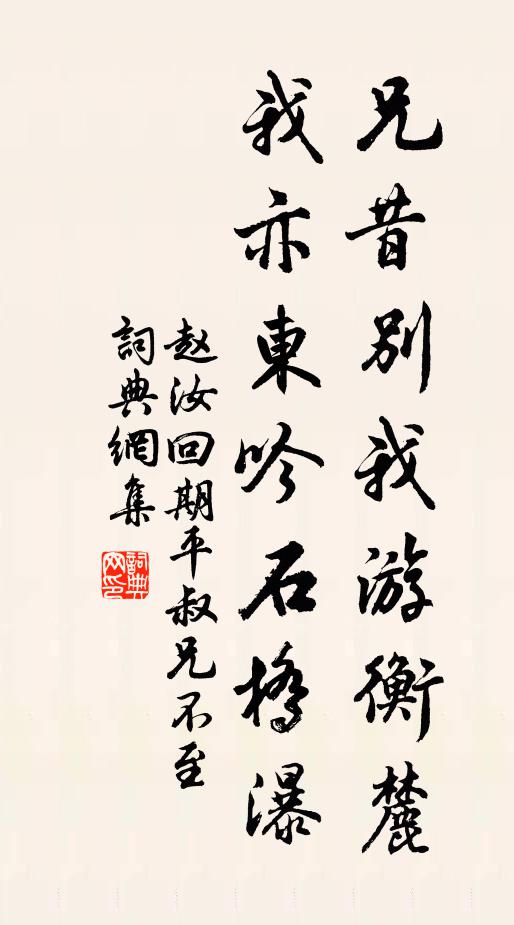 兄昔別我游衡麓
我亦東吟石橋瀑
赵汝回期平叔兄不至
詞典網集
詞典网印